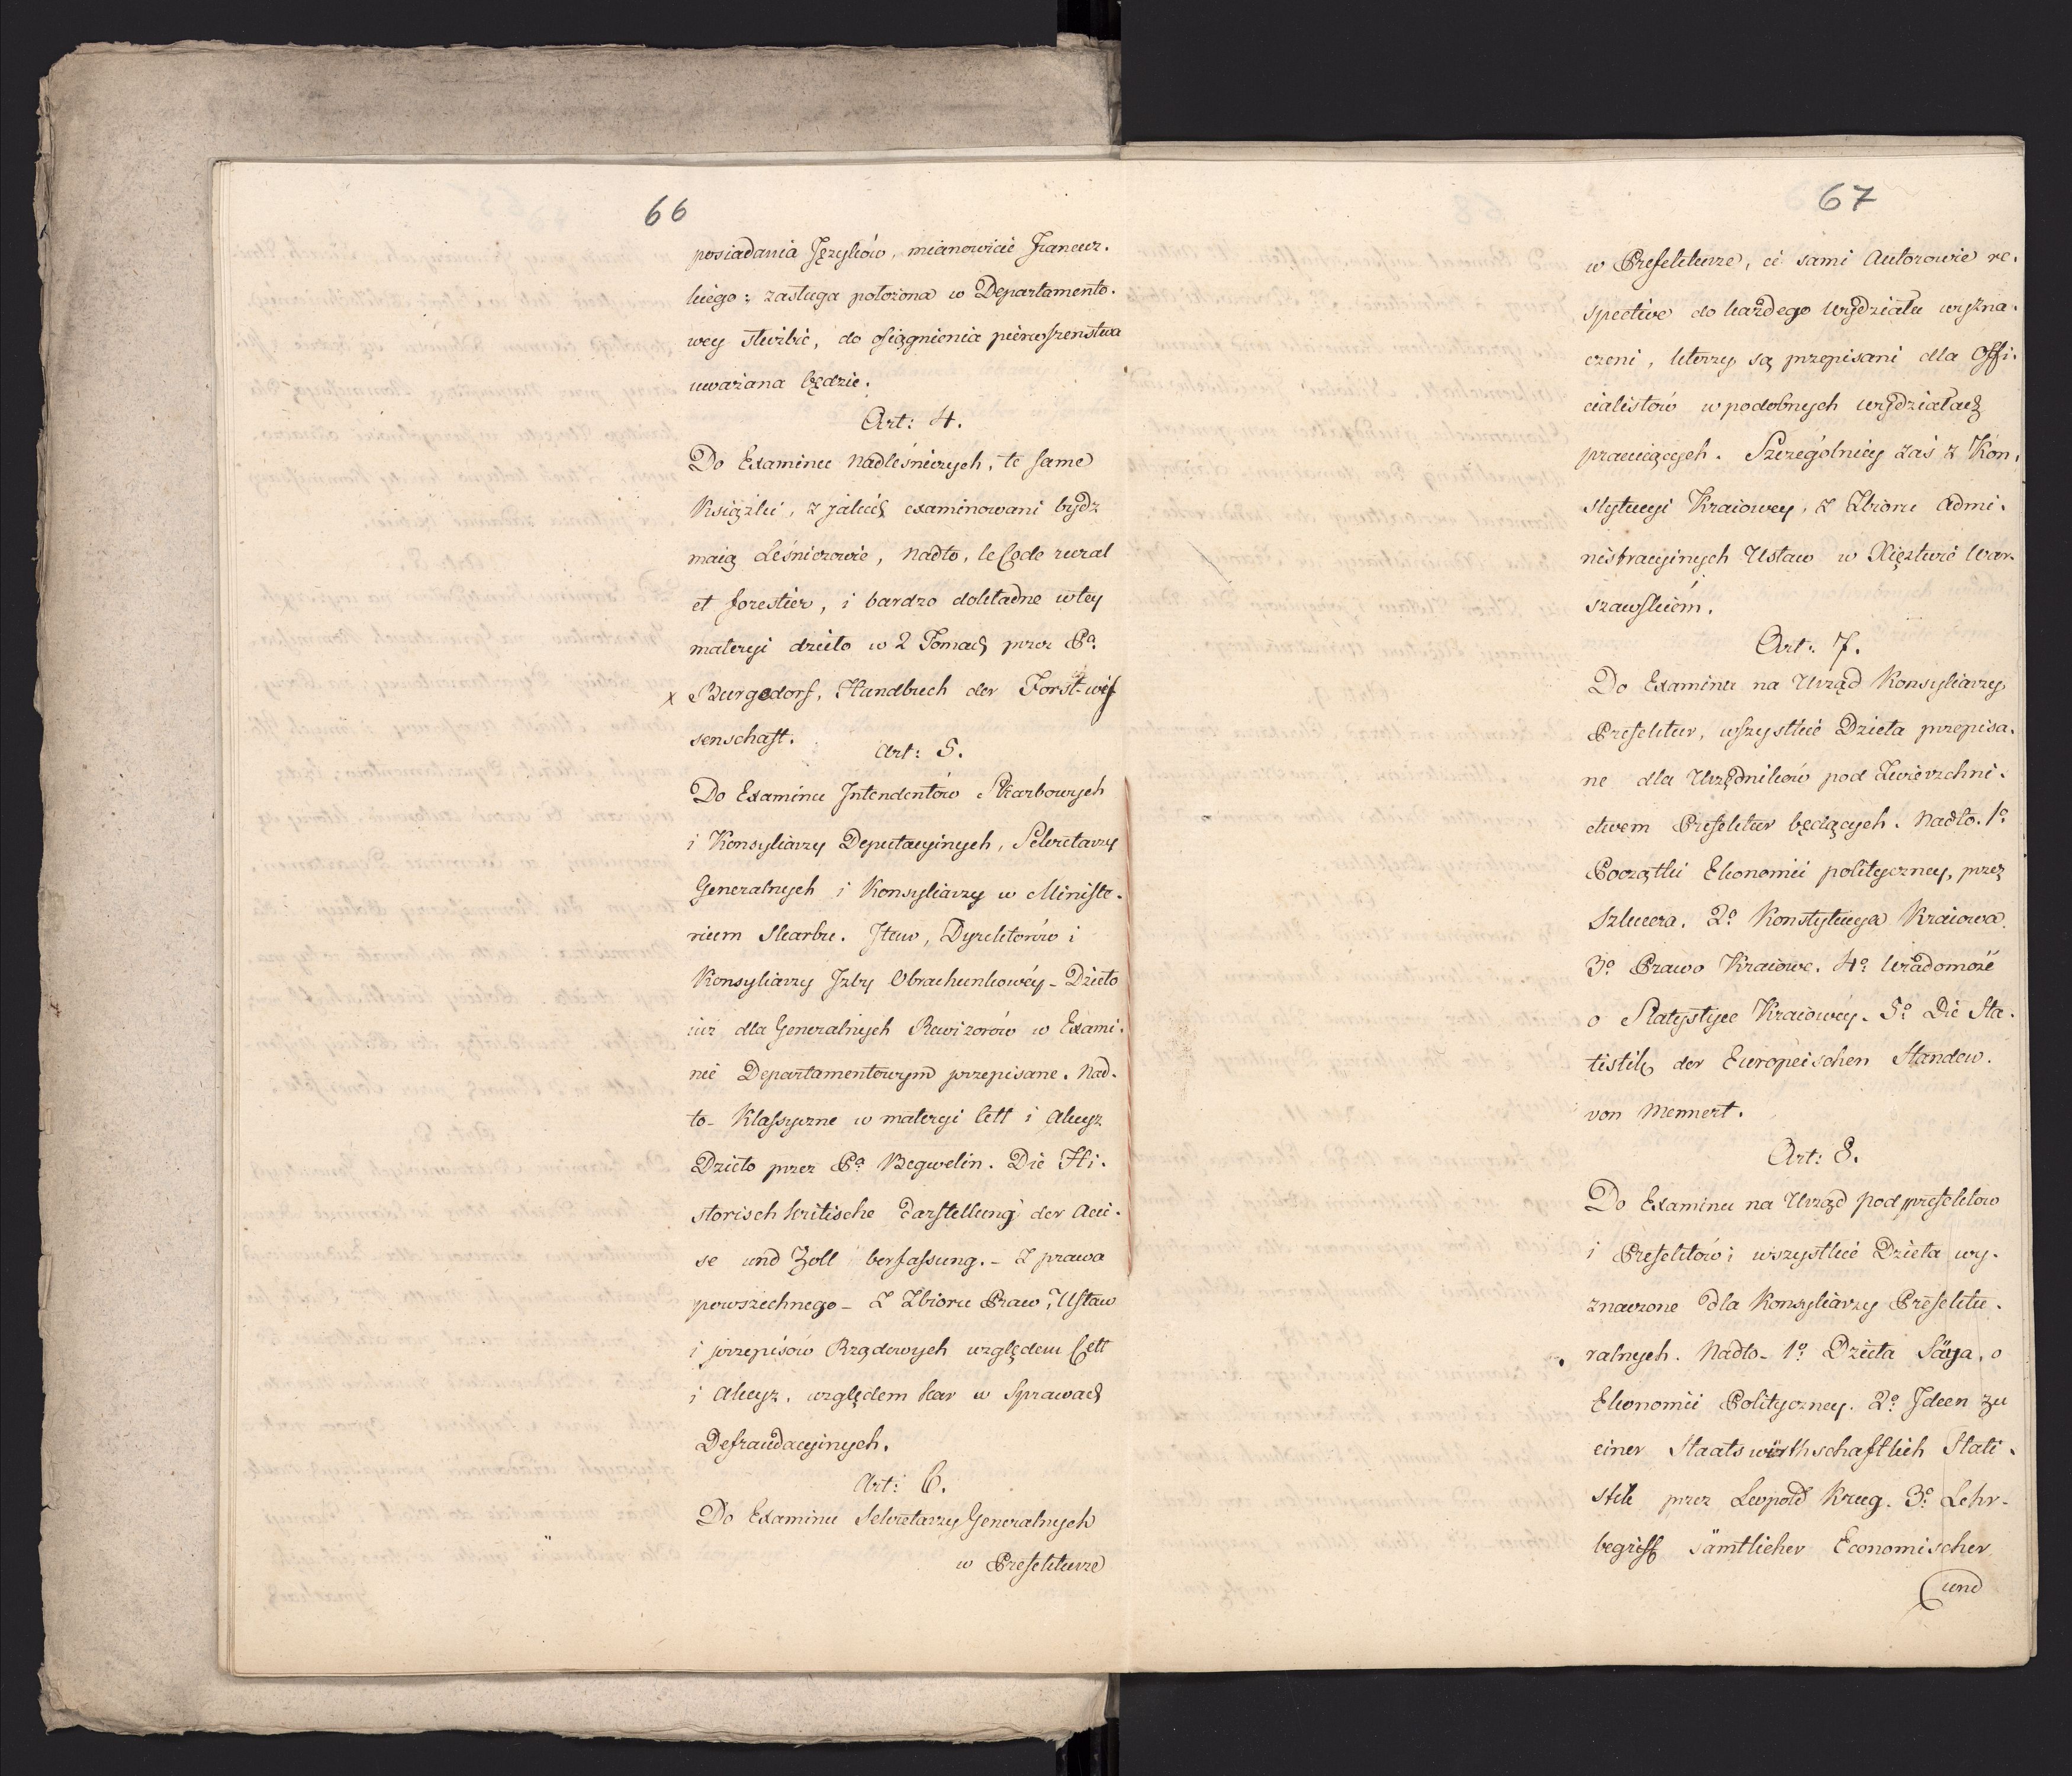 66
posiadania Języków, mianowicie Francuz.
kiego: zasługa położona w Departamento.
wey służbie, do osiągnienia pierwszenstwa
uważana będzie.
Art: 4.
Do Examinu Nadleśniczych, te same
Książki, z jakich examinowani bydz
maią Leśniczowie, Nadto, le Code rural
et forestier, i bardzo dokładne w tey
materyi dzieło w 2 Tomach przez Pa.
x Burgsdorf, Handbuch der Forst-wis
senschaft.
Art: 5.
Do Examinu Intendentów Skarbowych
i Konsyliarzy Deputacyinych, Sekretarzy
Generalnych i Konsyliarzy w Ministe.
rium Skarbu. Item, Dyrektorów i
Konsyliarzy Izby Obrachunkowéy - Dzieło
iuż dla Generalnych Rewizorów w Exami.
nie Departamentowym przepisane. Nad.
to - Klassyczne w materyi Cell i Akcyz
Dzieło przez Pa Begwelin. Die Hi.
storisch kritische Darstellung der Acci.
se und Zoll berfassung. - Z prawa
powszechnego - Z Zbioru Praw, Ustaw
i przepisów Rządowych względem Cell
i Akcyz, względem kar w Sprawach
Defraudacyinych.
Art: 6.
Do Examinu Sekretarzy Generalnych
w Prefekturze
67
w Prefekturze, ci sami Autorowie re.
spective do każdego Wydziału wyzna.
czeni, którzy są przepisani dla Offi.
cialistów w podobnych wydziałach
pracuiących. Szczególniey zaś z Kon.
stytucyi Kraiowey, z Zbioru Admi.
nistracyinych Ustaw w Xięztwie War.
szawskiém.
Art: 7.
Do Examinu na Urząd Konsyliarzy
Prefektur, wszystkie Dzieła przepisa.
ne dla Urzędników pod Zwierzchni.
ctwem Prefektur będących. Nadto. 1o
Początki Ekonomii polityczney, przez
Szlucera. 2o Konstytucya Kraiowa.
3o Prawo Kraiowe. 4o Wiadomość
o Statystyce Kraiowéy. 5o Die Sta.
tistik der Europeischen Standew.
von Memert.
Art: 8.
Do Examinu na Urząd podprefektow
i Prefektów; wszystkie Dzieła wy.
znaczone dla Konsyliarzy Prefektu.
ralnych. Nadto - 1o Dzieła Säya, o
Ekonomii Polityczney. 2o Ideen zu
einer Staatswürthschaftlich Stati.
stik przez Leopold Krug. 3o Lehr-
begriff sämtlicher Economischer
und